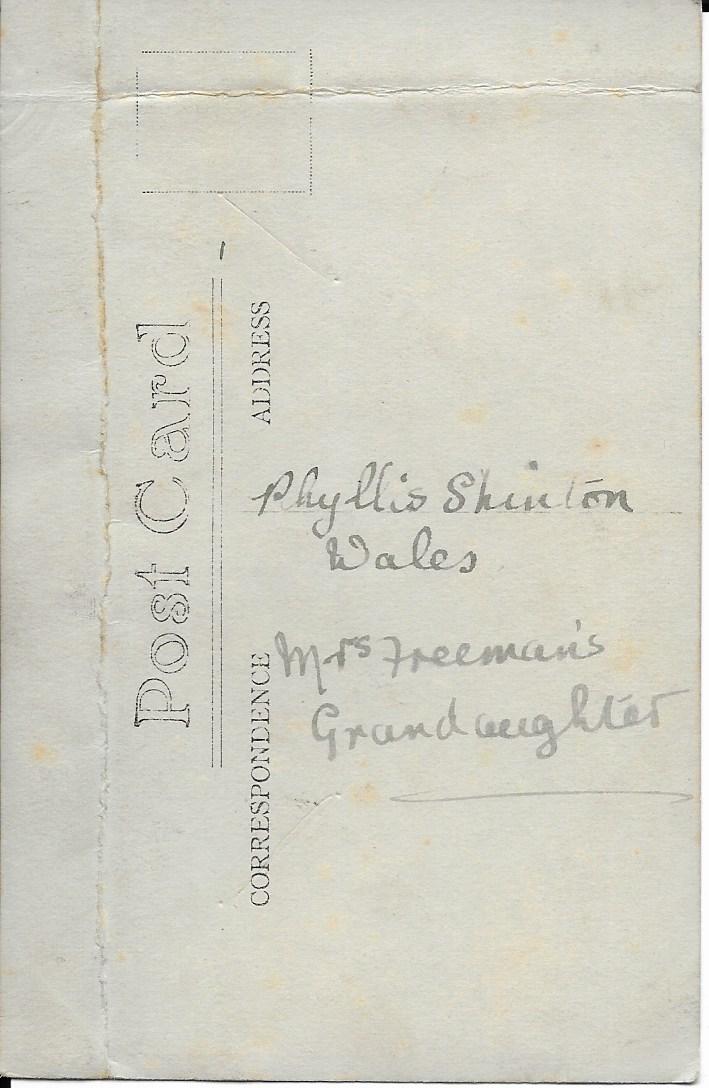 Post Card
CORRESPONDENCE
ADDRESS
Phyllis Shinton
Wales
Mrs Freeman's
Grandaughter